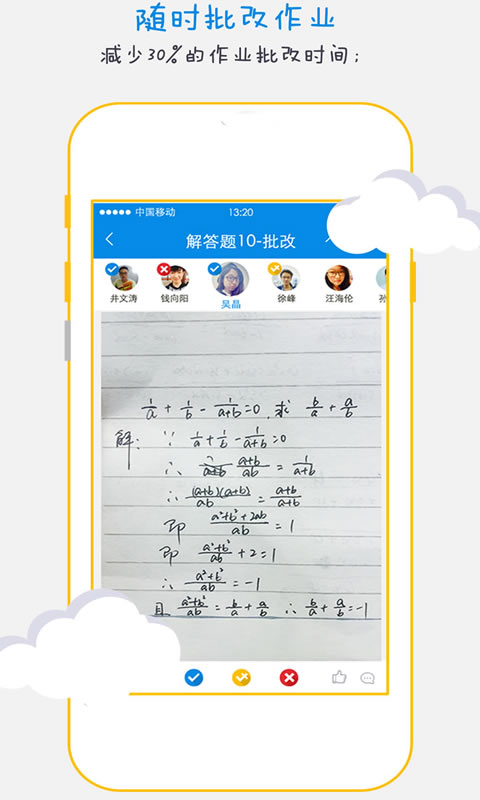 随时批改作业
减少30%的作业批改时间;
中国移动 13:20
解答题10-批改
井文涛 钱向阳 吴晶 徐峰 汪海伦 孙
1/a + 1/b - 1/(a+b) =0, 求 b/a + a/b
解: ∵ 1/a + 1/b - 1/(a+b) =0
∴ (a+b)/ab = 1/(a+b)
∴ (a+b)(a+b)/ab = (a+b)/(a+b)
即 (a²+b²+2ab)/ab = 1
即 (a²+b²)/ab + 2 = 1
∴ (a²+b²)/ab = -1
且 (a²+b²)/ab = b/a + a/b ∴ b/a + a/b = -1